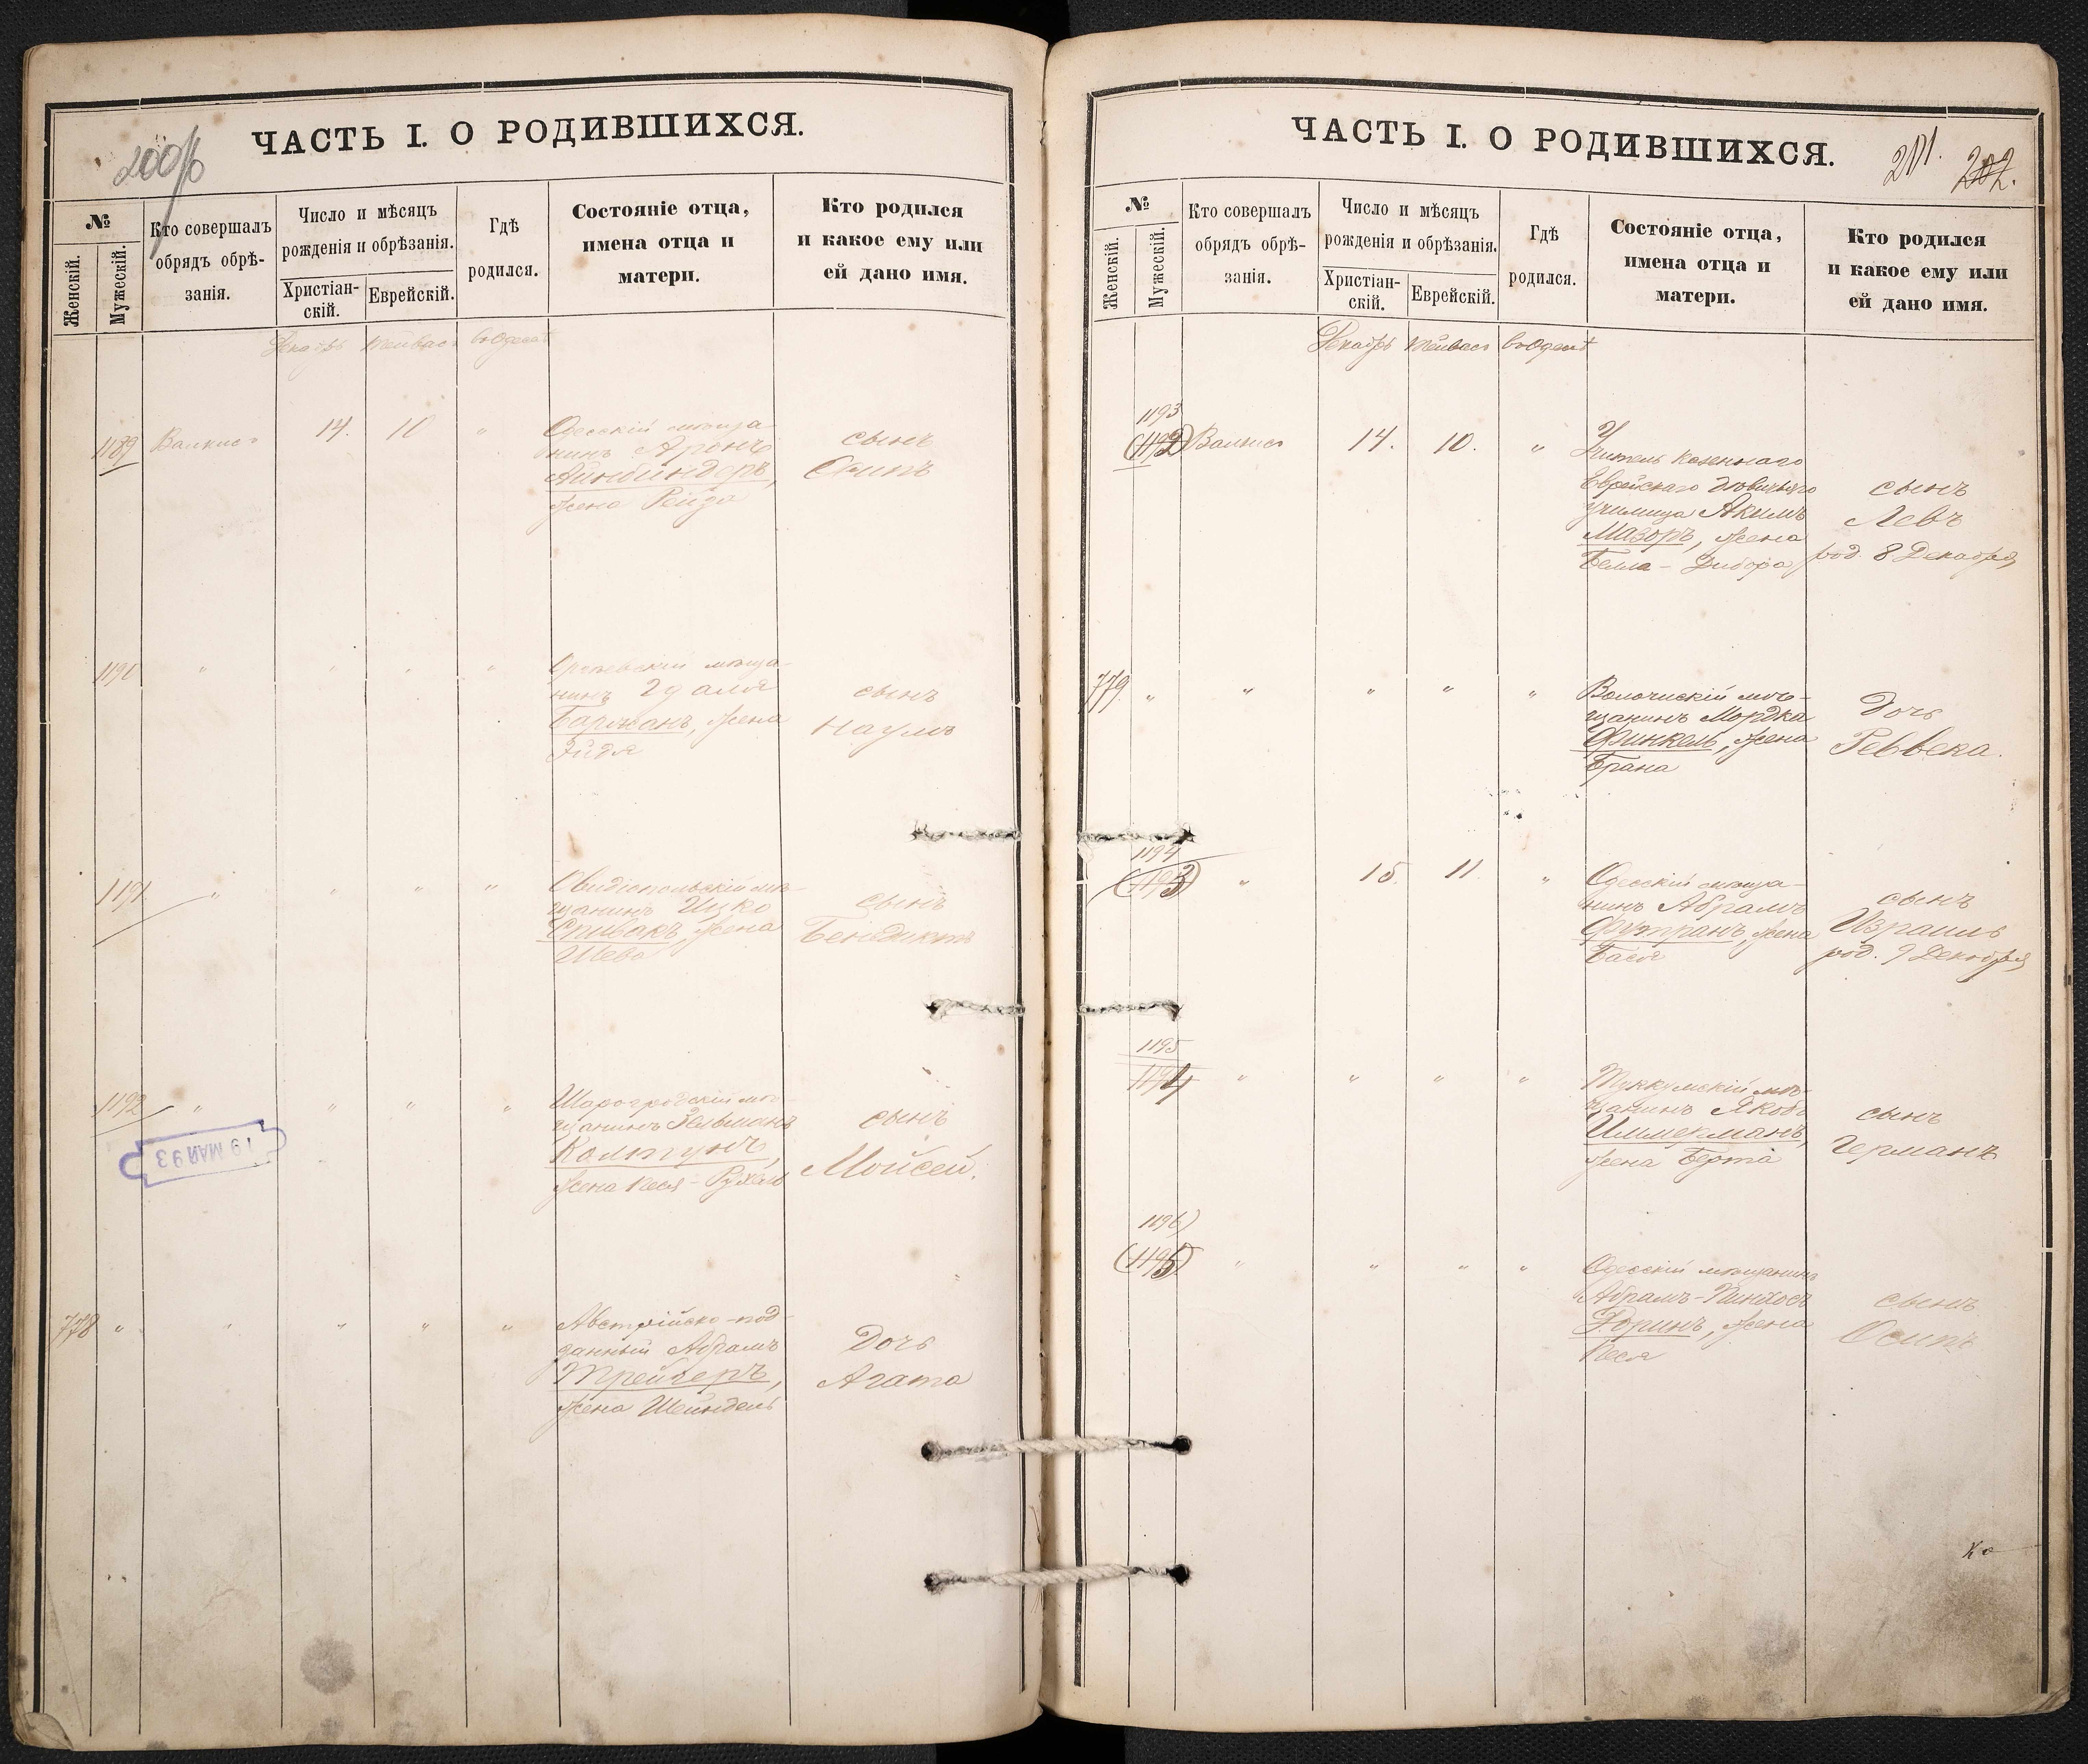 ЧАСТЬ I. О РОДИВШИХСЯ.
200
№
Женскій.
Мужескій.
Кто совершалъ
обрядъ обрѣ-
занія.
Число и мѣсяцъ
рожденія и обрѣзанія.
Христіан-
скій.
Еврейскій.
Гдѣ
родился.
Состояніе отца,
имена отца и
матери.
Кто родился
и какое ему или
ей дано имя.
Декабрь Тейвесъ въ Одессѣ
1189 14. 10 "
Одесскій мѣща-
нинъ Аронъ
Айнбиндеръ,
жена Рейза
сынъ
Осипъ
1190 " " " "
мѣща-
нинъ
жена
сынъ
Наумъ
1191 " " " "
Овидіопольскій мѣ-
щанинъ Ицко
Спивакъ, жена
Шева
сынъ
Бенедиктъ
1192 " " " "
Шаргородскій мѣ-
щанинъ Зельманъ
Колтунъ,
жена Песя-Рухель
сынъ
Мойсей.
19 МАЯ 93
778 " " " " "
Австрійско-под-
данный Абрамъ
Трейгеръ,
жена Шейндель
Дочь
Агата
ЧАСТЬ I. О РОДИВШИХСЯ.
201. 202.
№
Женскій.
Мужескій.
Кто совершалъ
обрядъ обрѣ-
занія.
Число и мѣсяцъ
рожденія и обрѣзанія.
Христіан-
скій.
Еврейскій.
Гдѣ
родился.
Состояніе отца,
имена отца и
матери.
Кто родился
и какое ему или
ей дано имя.
Декабрь Тейвесъ въ Одессѣ
1193
1192 14. 10. "
Учитель казеннаго
Еврейскаго Дѣвичьяго
училища Акимъ
Мазоръ, жена
Белла-Двойра
сынъ
Левъ
род. 8 Декабря
779 " " " " "
Волочискій мѣ-
щанинъ Мордка
Финкель, жена
Брана
Дочь
Реввека.
1194
1193 " 15. 11. "
Одесскій мѣща-
нинъ Абрамъ
Футранъ, жена
Бася
сынъ
Израиль
род. 9 Декабря
1195
1194 " " " "
Туккумскій мѣ-
щанинъ Якобъ
Циммерманъ,
жена Берта
сынъ
Германъ
1196
1195 " " " "
Одесскій мѣщанинъ
Абрамъ-Пинхосъ
жена
Песя
сынъ
Осипъ